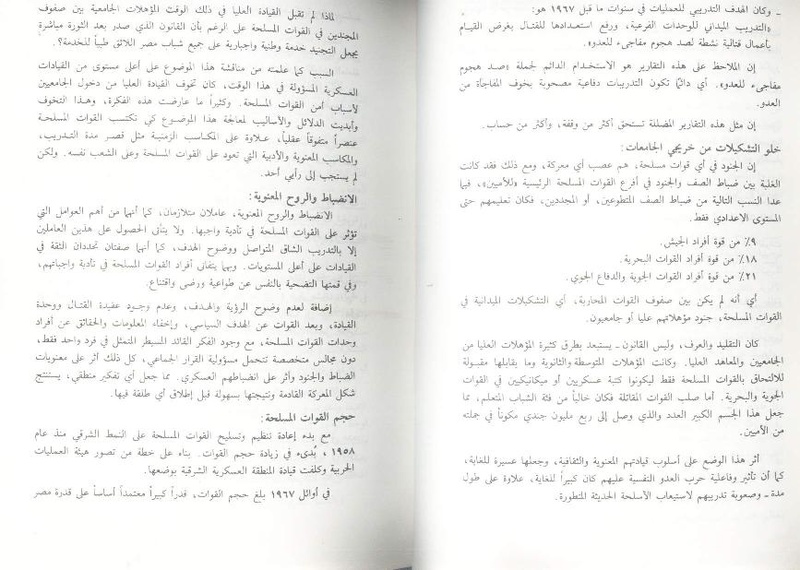 ـ وكان الهدف التدريبي للعمليات في سنوات ما قبل ١٩٦٧ هو:
«التدريب الميداني للوحدات الفرعية، ورفع استعدادها للقتال بغرض القيام
بأعمال قتالية نشطة لصد هجوم مفاجىء للعدو».
إن الملاحظ على هذه التقارير هو الاستخدام الدائم لجملة «صد هجوم
مفاجىء للعدو». أي دائماً تكون التدريبات دفاعية مصحوبة بخوف المفاجأة من
العدو.
إن مثل هذه التقارير المضللة تستحق أكثر من وقفة، وأكثر من حساب.
خلو التشكيلات من خريجي الجامعات:
إن الجنود في أي قوات مسلحة، هم عصب أي معركة، ومع ذلك فقد كانت
الغلبة بين ضباط الصف والجنود في أفرع القوات المسلحة الرئيسية «للأميين»، فيما
عدا النسب التالية من ضباط الصف المتطوعين، أو المجندين، فكان تعليمهم حتى
المستوى الاعدادي فقط.
٩٪ من قوة أفراد الجيش.
١٨٪ من قوة أفراد القوات البحرية.
٢١٪ من قوة أفراد القوات الجوية والدفاع الجوي.
أي أنه لم يكن بين صفوف القوات المحاربة، أي التشكيلات الميدانية في
القوات المسلحة، جنود مؤهلاتهم عليا أو جامعيون.
كان التقليد والعرف، وليس القانون ـ يستبعد بطرق كثيرة المؤهلات العليا من
الجامعيين والمعاهد العليا. وكانت المؤهلات المتوسطة والثانوية وما يقابلها مقبولة
للالتحاق بالقوات المسلحة فقط ليكونوا كتبة عسكريين أو ميكانيكيين في القوات
الجوية والبحرية. أما صلب القوات المقاتلة فكان خالياً من فئة الشباب المتعلم، مما
جعل هذا الجسم الكبير العدد والذي وصل إلى ربع مليون جندي مكوناً في جملته
من الأميين.
أثر هذا الوضع على أسلوب قيادتهم المعنوية والثقافية، وجعلها عسيرة للغاية،
كما أن تأثير وفاعلية حرب العدو النفسية عليهم كان كبيراً للغاية، علاوة على طول
مدة ـ وصعوبة تدريبهم لاستيعاب الأسلحة الحديثة المتطورة.
لماذا لم تقبل القيادة العليا في ذلك الوقت المؤهلات الجامعية بين صفوف
المجندين في القوات المسلحة على الرغم بأن القانون الذي صدر بعد الثورة مباشرة
يجعل التجنيد خدمة وطنية واجبارية على جميع شباب مصر اللائق طبياً للخدمة؟.
السبب كما علمته من مناقشة هذا الموضوع على أعلى مستوى من القيادات
العسكرية المسؤولة في هذا الوقت، كان تخوف القيادة العليا من دخول الجامعيين
لأسباب أمن القوات المسلحة. وكثيراً ما عارضت هذه الفكرة، وهذا التخوف
وأبديت الدلائل والأساليب لمعالجة هذا الموضوع كي تكتسب القوات المسلحة
عنصراً متفوقاً عقلياً، علاوة على المكاسب الزمنية مثل قصر مدة التدريب،
والمكاسب المعنوية والأدبية التي تعود على القوات المسلحة وعلى الشعب نفسه. ولكن
لم يستجب إلى رأيي أحد.
الانضباط والروح المعنوية:
الانضباط والروح المعنوية، عاملان متلازمان، كما أنهما من أهم العوامل التي
تؤثر على القوات المسلحة في تأدية واجبها. ولا يتأتى الحصول على هذين العاملين
إلا بالتدريب الشاق المتواصل ووضوح الهدف، كما أنهما صفتان تحددان الثقة في
القيادات على أعلى المستويات. وبهما يتفانى أفراد القوات المسلحة في تأدية واجباتهم،
وفي قمتها التضحية بالنفس عن طواعية ورضى واقتناع.
إضافة لعدم وضوح الرؤية والهدف، وعدم وجود عقيدة القتال ووحدة
القيادة، وبعد القوات عن الهدف السياسي، وإخفاء المعلومات والحقائق عن أفراد
وحدات القوات المسلحة، مع وجود الفكر القائد المسيطر المتمثل في فرد واحد فقط،
دون مجالس متخصصة تتحمل مسؤولية القرار الجماعي، كل ذلك أثر على معنويات
الضباط والجنود وأثر على انضباطهم العسكري. مما جعل أي تفكير منطقي، يستنتج
شكل المعركة القادمة ونتيجتها بسهولة قبل إطلاق أي طلقة فيها.
حجم القوات المسلحة:
مع بدء إعادة تنظيم وتسليح القوات المسلحة على النمط الشرقي منذ عام
١٩٥٨، بُدىء في زيادة حجم القوات. بناء على خطة من تصور هيئة العمليات
الحربية وكلفت قيادة المنطقة العسكرية الشرقية بوضعها.
في أوائل ١٩٦٧ بلغ حجم القوات، قدراً كبيراً معتمداً أساساً على قدرة مصر